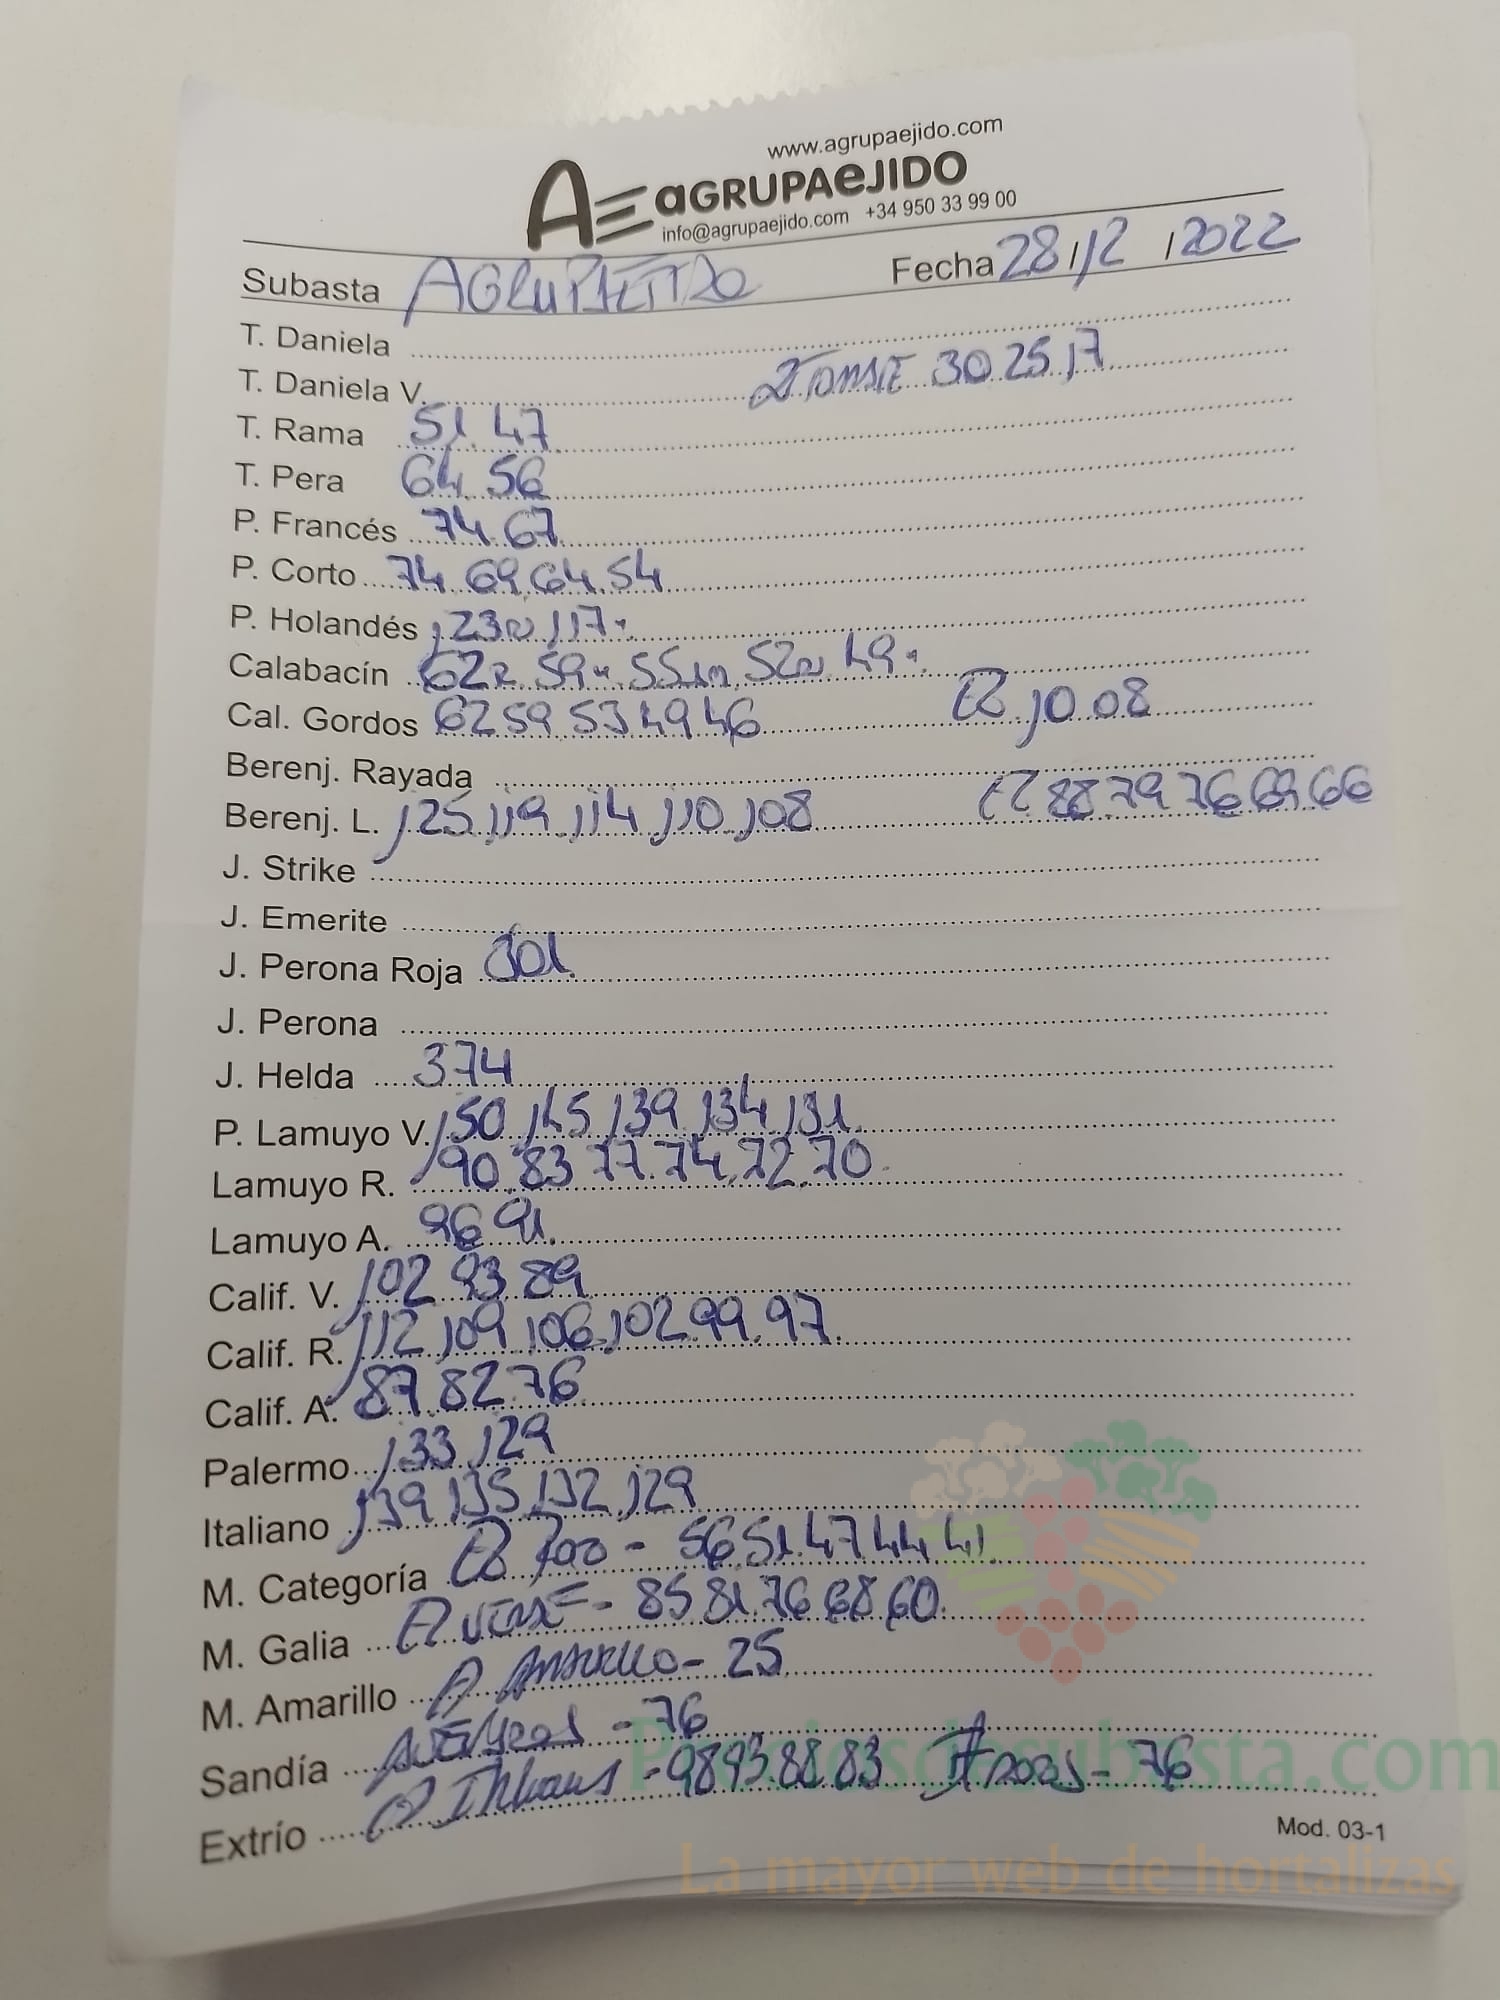 www.agrupaejido.com
AE aGRUPAeJIDO
info@agrupaejido.com +34 950 33 99 00
Subasta AGRUPAEJIDO Fecha 28/12/2022
T. Daniela
T. Daniela V. 30 25 17
T. Rama 51 47
T. Pera 64 56
P. Francés 74 67
P. Corto 74 69 64 54
P. Holandés 123 117
Calabacín 62 59 55 52 49
Cal. Gordos 62 59 53 49 46 10 08
Berenj. Rayada
Berenj. L. 125 119 114 110 108 88 79 76 69 66
J. Strike
J. Emerite
J. Perona Roja 301
J. Perona
J. Helda 374
P. Lamuyo V. 150 145 139 134 131
Lamuyo R. 90 83 77 74 72 70
Lamuyo A. 96 91
Calif. V. 102 93 89
Calif. R. 112 109 106 102 99 97
Calif. A. 87 82 76
Palermo 133 129
Italiano 139 135 132 129
M. Categoría - 56 51 47 44 41
M. Galia - 85 81 76 68 60
M. Amarillo Amarillo - 25
Sandía - 76
Extrío - 98 93 88 83 - 76
Preciosdesubasta.com
Mod. 03-1
La mayor web de hortalizas